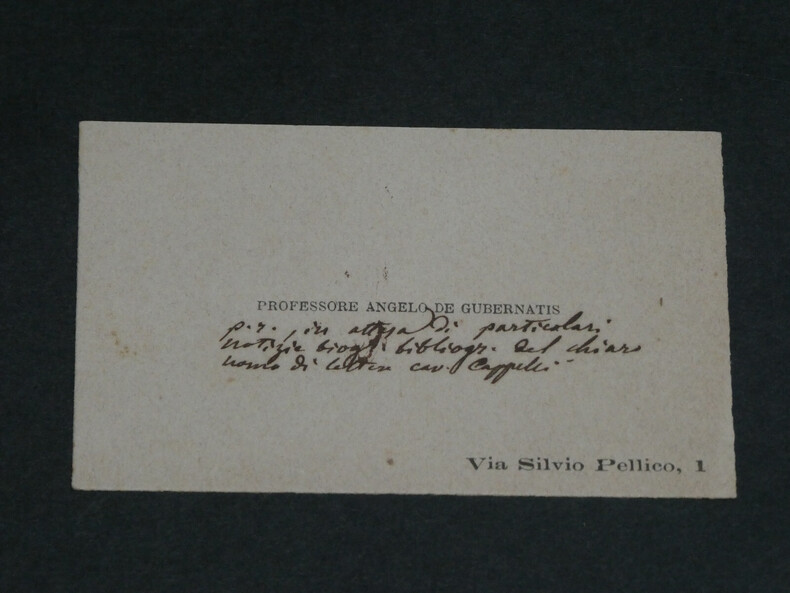 PROFESSORE ANGELO DE GUBERNATIS
p. r., in attesa di particolari
notizie biogr. bibliogr. del chiaro
uomo di lettere cav. Cappelli
Via Silvio Pellico, 1